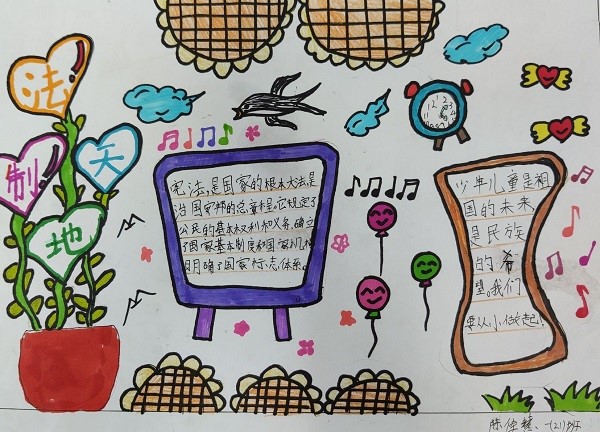 法
制
天
地
宪法,是国家的根本大法,是
治国安邦的总章程。它规定了
公民的基本权利和义务,确立
了国家基本制度和国家机构
明确了国家标志,体系。
少年儿童是祖
国的未来
是民族
的希
望。我们
要从小做起。
一(21)班